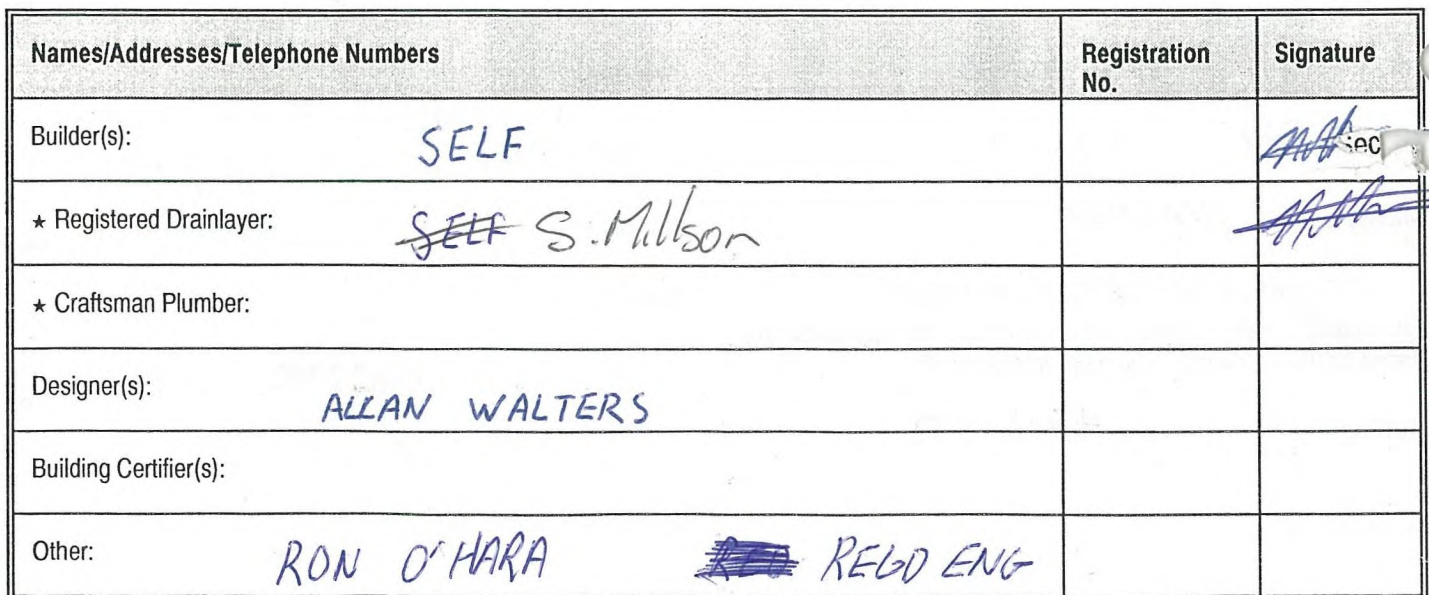 Names/Addresses/Telephone Numbers Registration No. Signature
Builder(s): SELF
★ Registered Drainlayer: SELF S. Millson
★ Craftsman Plumber:
Designer(s): ALLAN WALTERS
Building Certifier(s):
Other: RON O'HARA REGD ENG